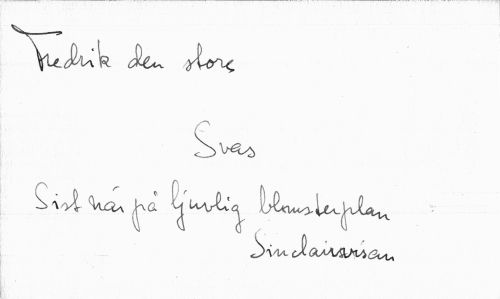 Fredrik den store
Svas
Sist när på ljuvlig blomsterplan
Sinclairsvisan